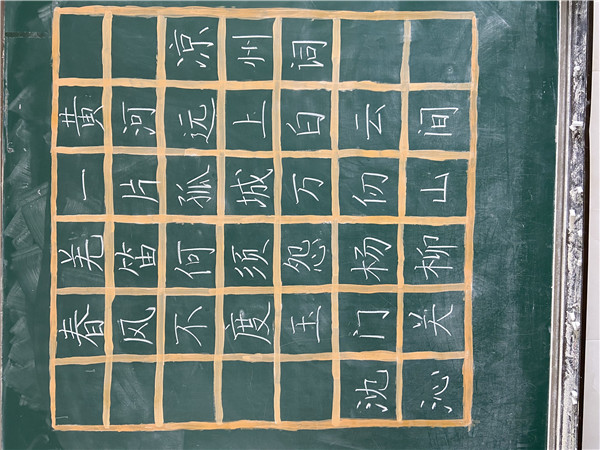 凉州词
黄河远上白云间
一片孤城万仞山
羌笛何须怨杨柳
春风不度玉门关
沈沁